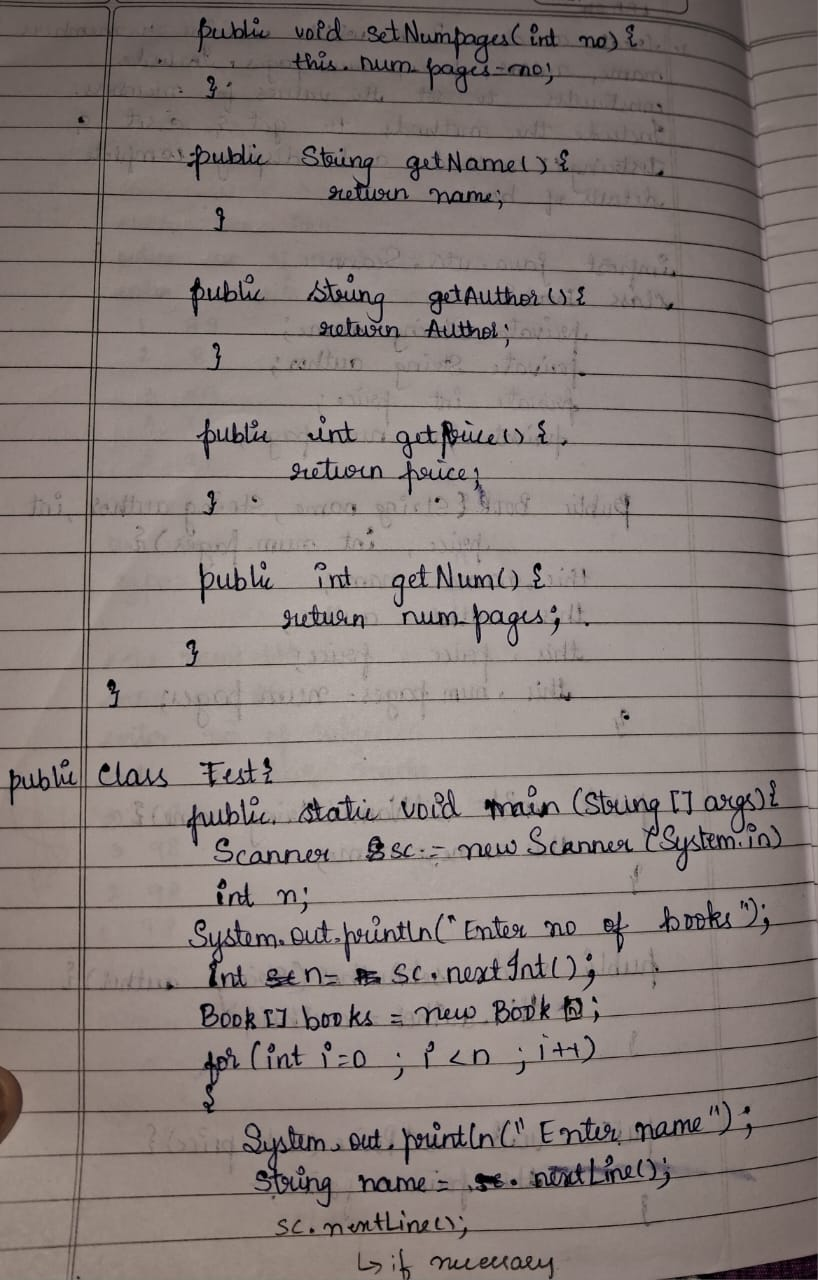 public void setNumpages(int no) {
this. num_pages=no;
}
public String getName() {
return name;
}
public String getAuthor() {
return Author;
}
public int getprice() {
return price;
}
public int getNum() {
return num_pages;
}
}
public class Test{
public static void main (String [] args){
Scanner sc = new Scanner (System.in)
int n;
System.out.println("Enter no of books");
int n= sc.nextInt();
Book [] books = new Book [n];
for (int i=0 ; i<n ; i++)
{
System.out.println(" Enter name");
String name = sc. nextLine();
sc.nextLine();
↳ if necessary